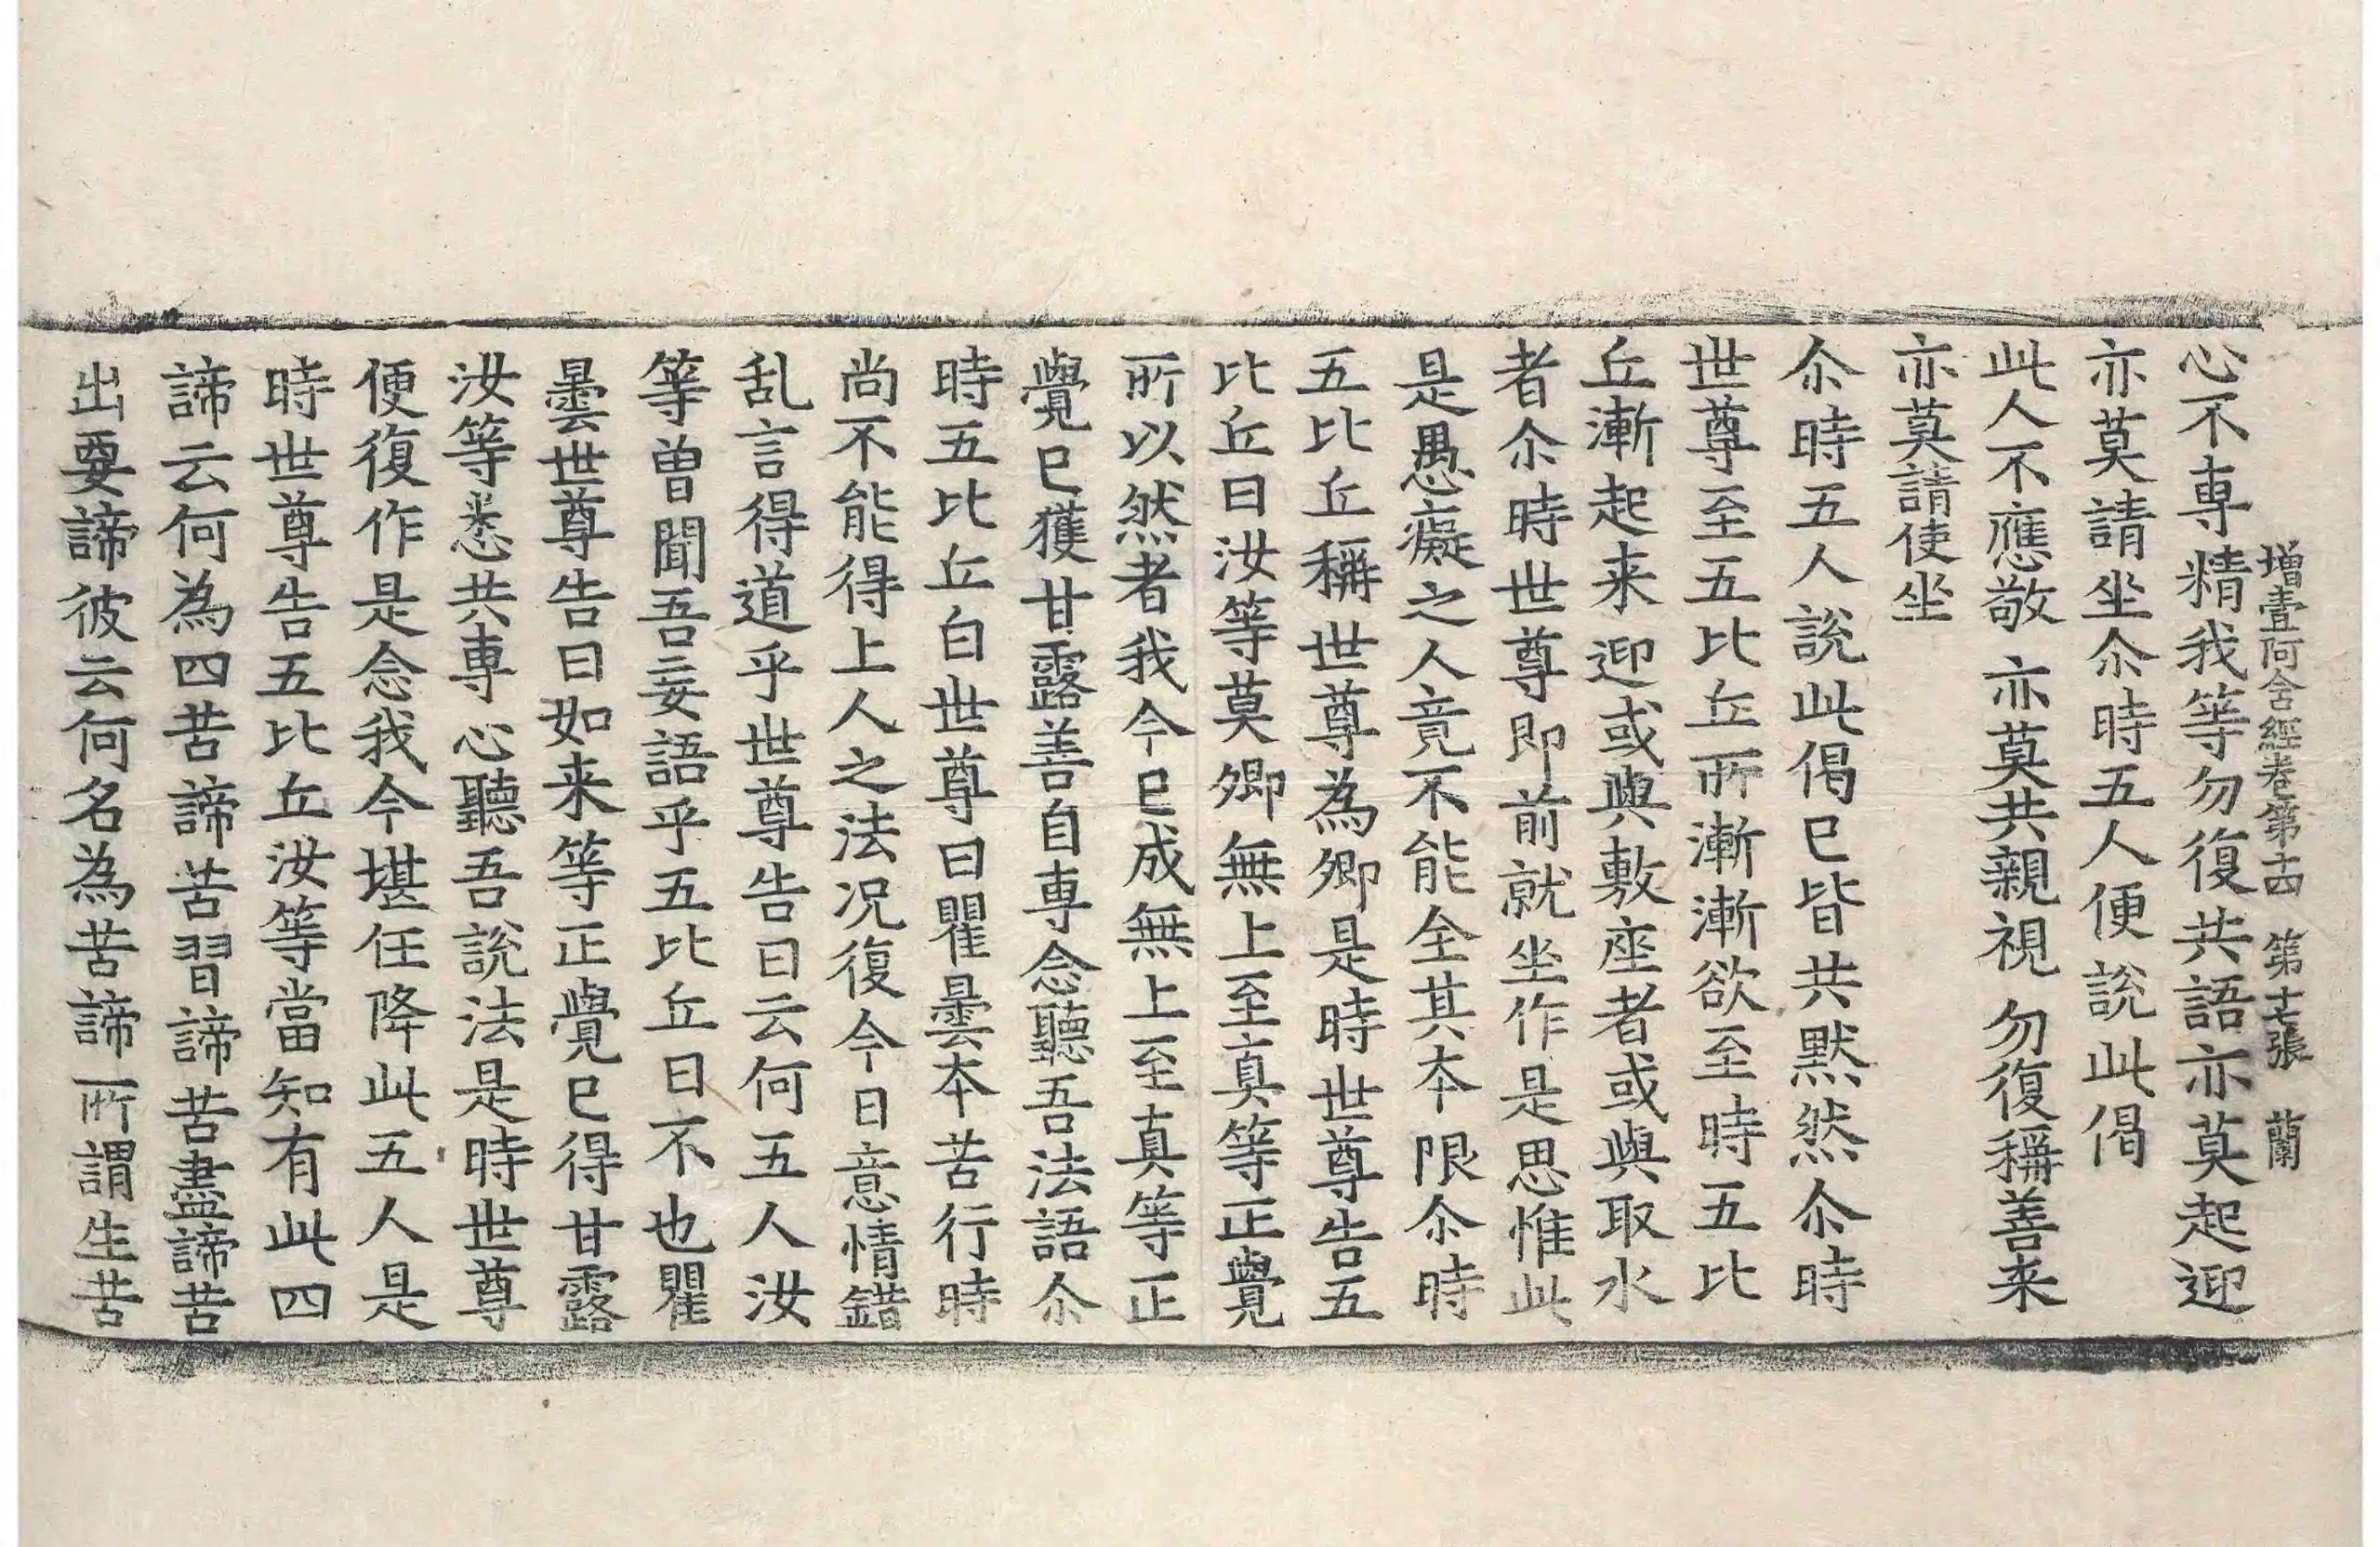 增壹阿含經卷第十四 第十七張 蘭
心不専精我等勿復共語亦莫起迎
亦莫請坐尒時五人便說此偈
此人不應敬 亦莫共親視 勿復稱善来
亦莫請使坐
尒時五人說此偈已皆共黙然尒時
世尊至五比丘所漸漸欲至時五比
丘漸起来迎或與敷座者或與取水
者尒時世尊即前就坐作是思惟此
是愚癡之人竟不能全其本限尒時
五比丘稱世尊為卿是時世尊告五
比丘曰汝等莫卿無上至真等正覺
所以然者我今已成無上至真等正
覺已獲甘露善自専念聽吾法語尒
時五比丘白世尊曰瞿曇本苦行時
尚不能得上人之法况復今日意情錯
乱言得道乎世尊告曰云何五人汝
等曽聞吾妄語乎五比丘曰不也瞿
曇世尊告曰如来等正覺已得甘露
汝等悉共専心聽吾說法是時世尊
便復作是念我今堪任降此五人是
時世尊告五比丘汝等當知有此四
諦云何為四苦諦苦習諦苦盡諦苦
出要諦彼云何名為苦諦所謂生苦